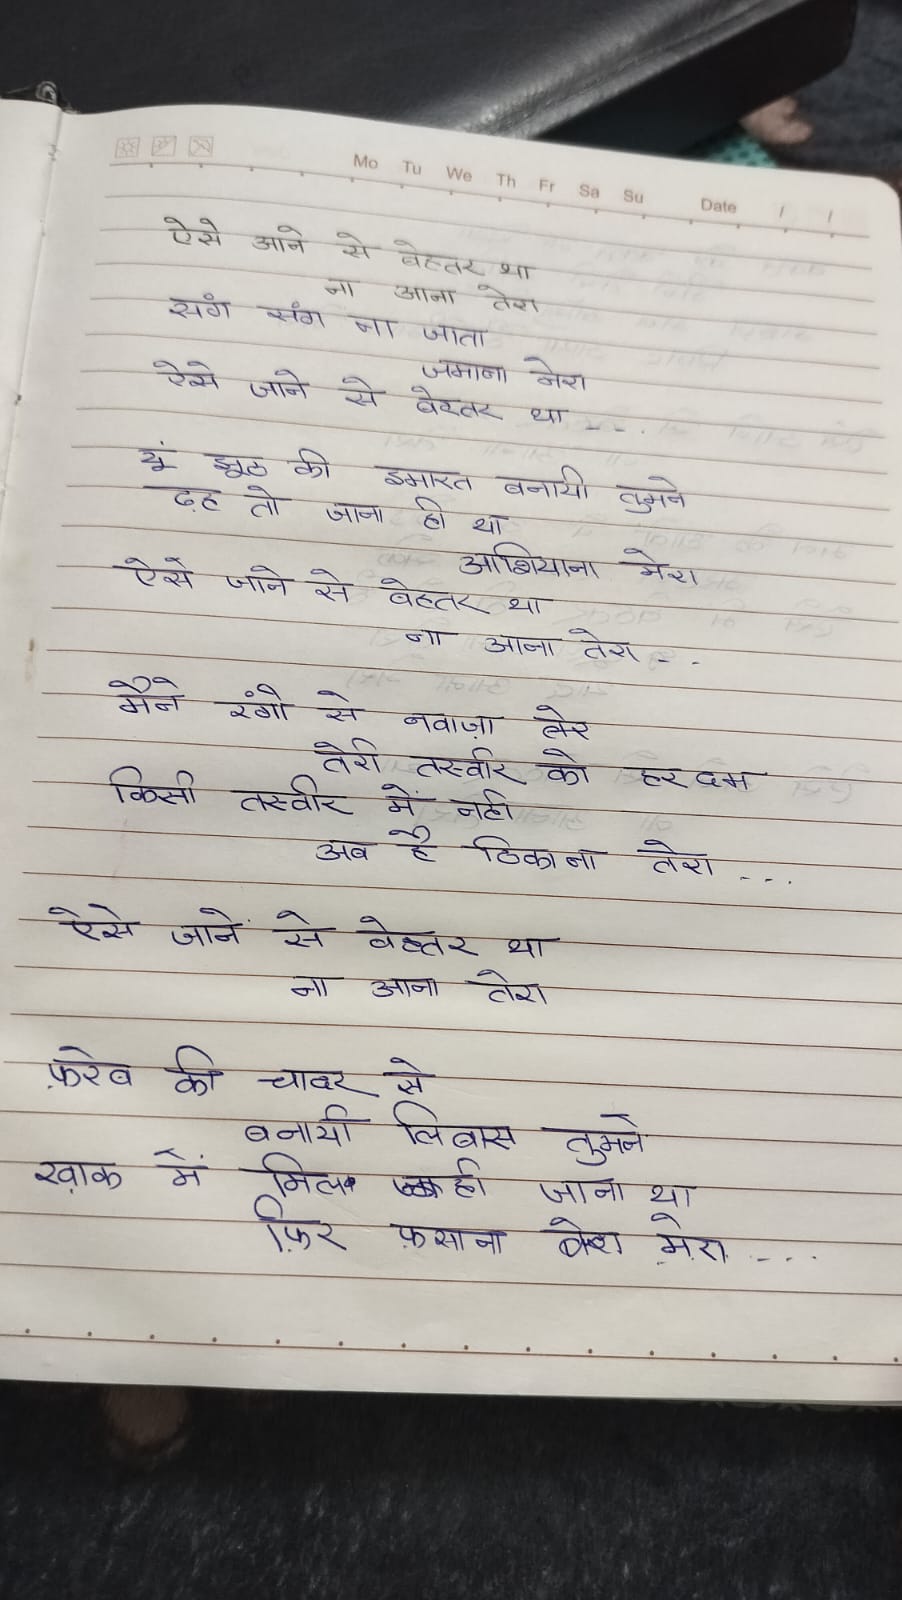 Mo Tu We Th Fr Sa Su Date / /
ऐसे आने से बेहतर था
ना आना तेरा
संग संग ना जाता
जमाना मेरा
ऐसे जाने से बेहतर था - - .
यूं झूठ की इमारत बनायी तुमने
ढ़ह तो जाना ही था
आशियाना मेरा
ऐसे जाने से बेहतर था
ना आना तेरा - .
मैने रंगो से नवाज़ा
तेरी तस्वीर को हरदम
किसी तस्वीर में नही
अब है ठिकाना तेरा ...
ऐसे जाने से बेहतर था
ना आना तेरा
फ़रेब की चादर से
बनायी लिबास तुमने
ख़ाक में मिल ही जाना था
फ़िर फ़साना मेरा ...